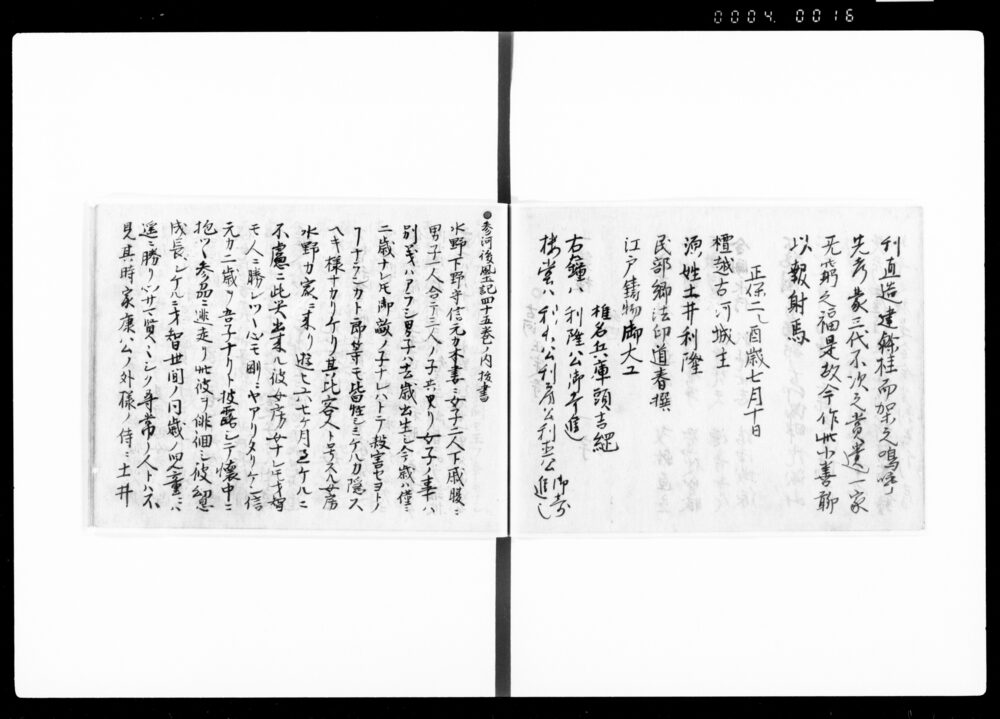 0004. 0016
刊直造建鋒柱而架之鳴呼
先考蒙三代不次之賞遺一家
无窮之福是故今作此小善聊
以報射馬
正保二乙酉歳七月十日
檀越古河城主
源姓土井利隆
民部卿法印道春撰
江戸鋳物御大工
椎名兵庫頭吉綱
右鐘ハ利隆公御寄進
楼堂ハ利
●参河後風土記四十五巻ノ内抜書
水野下野守信元カ本妻ニ女子二人下戚腹ニ
男子一人合テ三人ノ子共アリ女子ノ事ハ
別義ハアラシ男子ハ去歳出生シ今歳ハ僅ニ
二歳ナレ𪜈御敵ノ子ナレハトテ殺害セヨトノ
ヿナラ郎等モ皆ケルカ隠ス
ヘキ様ナカリケリ其比客人ト号スル女房
水野カ家ニ来リ遊ヒ六七ケ月ケルニ
不慮ニ此災出来ル彼女房女ナレ𪜈才智
モ人ニ勝レツヨ心モ剛ニヤアリタリケン信
元カ二歳ヲ吾子ナリト披露シテ懐中ニ
抱ツヽ参品ニ逃走リ此彼ヲ徘徊シ彼
成長シケルニ才智世間ノ同歳ノ児童ニハ
遥ニ勝リ賢シク尋常ノ人トハ不
見其時家康公ノ外様ノ侍ニ土井